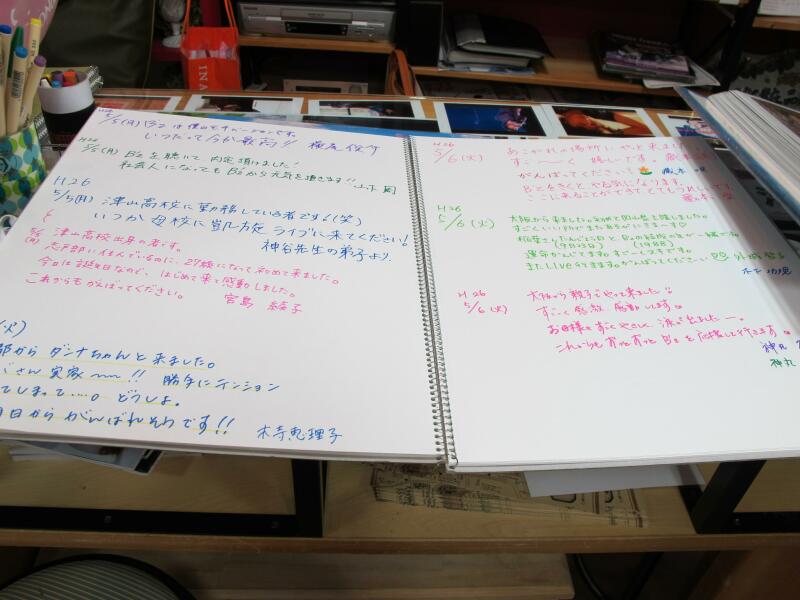 H26
5/5(月) B'zは僕のモチベーションです。
いつだって今が最高!!
H26
5/5(月) B'zを聴いて、内定頂けました!
社会人になってもB'zから元気を頂きます!!
H.26
5/5(月) 津山高校に勤務している者です(笑)
いつか母校に凱旋ライブに来てください!
神谷先生の弟子より
5/5(月) 津山高校出身の者です。
志戸部に住んでいるのに、27歳になって初めて来ました。
今日は誕生日なので、はじめて来て感動しました。
これからもがんばってください。 宮島 綾子
(火)
部からダンナちゃんと来ました。
ばさん実家〜〜!! 勝手にテンション
てしまって…。どうしよ。
明日からがんばれそうです!! 木寺恵理子
H26
5/6(火) あこがれの場所にやっと来ました
すご〜〜く嬉しいです。
がんばってください!
B'zをきくとやる気になります。
ここに来ることができてとてもうれしいです。
H26
5/6(火) 大阪から来ました。
すごくいい所でまた自分がにきまーす♡
稲葉さんのたんじょう日とB'zの結成の年が一緒です。
(9月23日) (1988)
運命かんじてますすごーくスキです。
またLiveいてきますがんばってください♡♡
H26
5/6(火) 大阪から親子でやって来ました
すごく感激 感動してます。
お母様もすごくやさしく、涙が出ましたー。
これからもずっとずっとB'zを応援して行きます。
INA